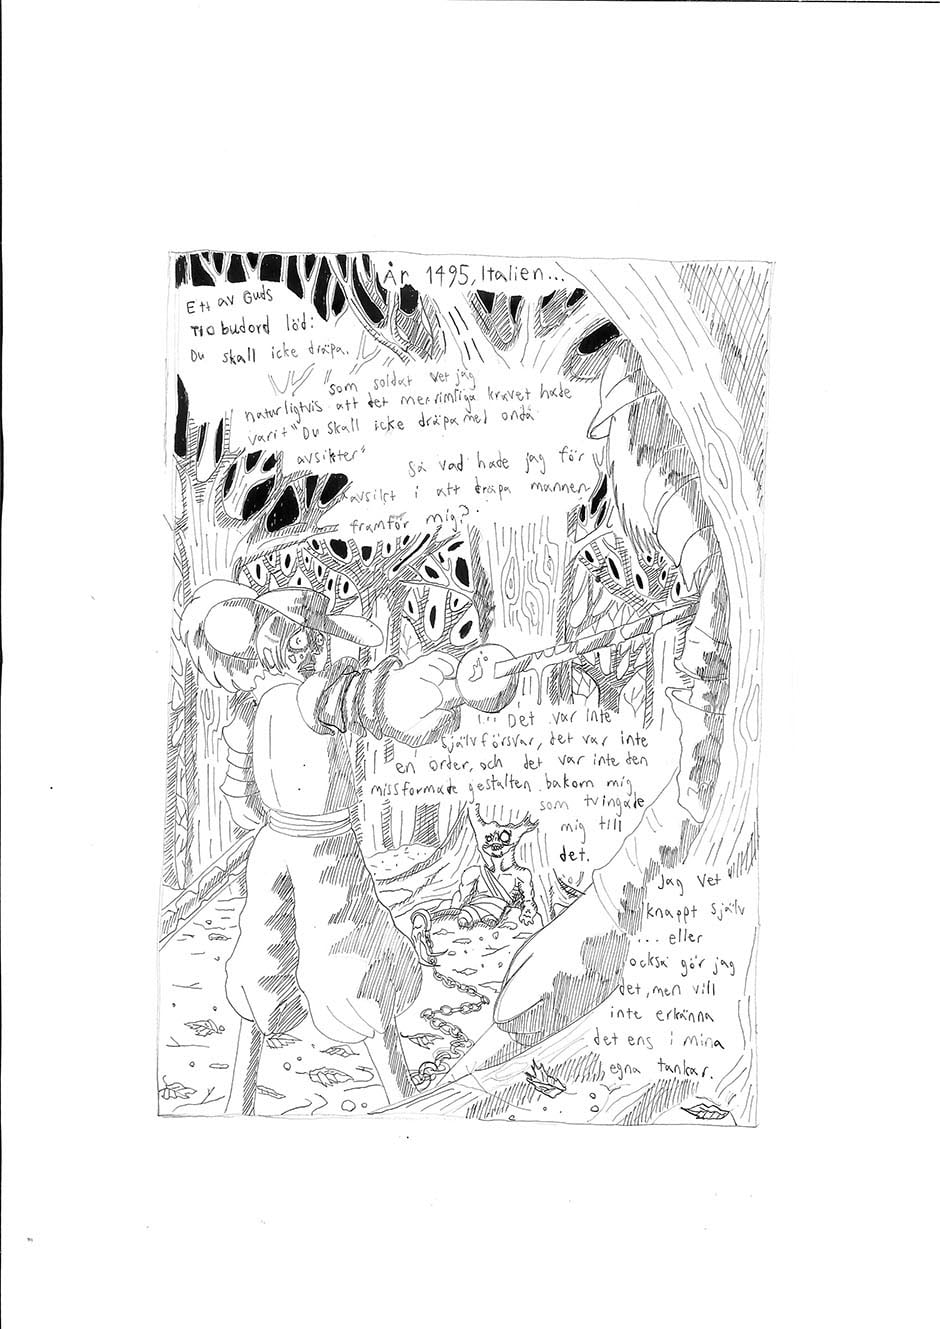 År 1495, Italien...
Ett av Guds
Tio budord löd:
Du skall icke dräpa.
Som soldat vet jag
naturligtvis att det mer rimliga kravet hade
varit "Du skall icke dräpa med onda
avsikter"
Så vad hade jag för
avsikt i att dräpa mannen
framför mig?
... Det var inte
självförsvar, det var inte
en order, och det var inte den
missformade gestalten bakom mig
som tvingade
mig till
det.
Jag vet
knappt själv
... eller
också gör jag
det, men vill
inte erkänna
det ens i mina
egna tankar.